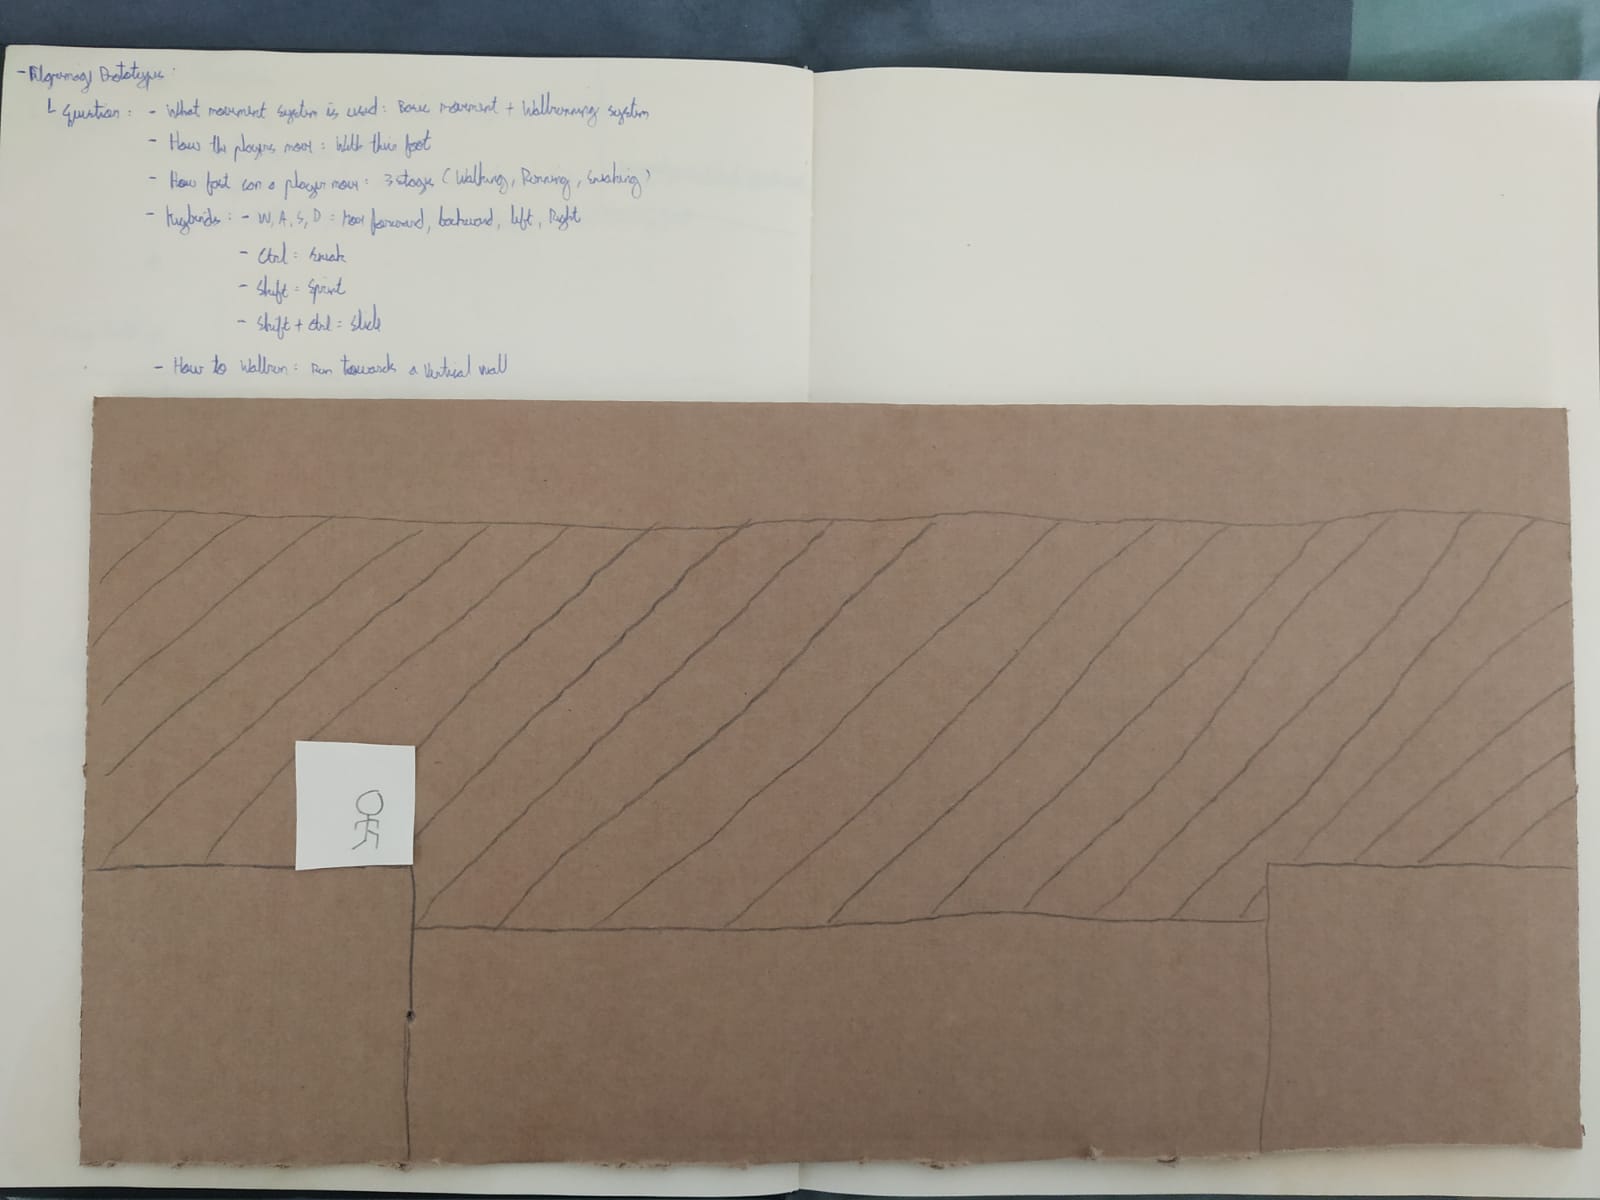 - Pilgrimage Prototypes:
Question: - What movement system is used: Basic movement + Wallrunning system
- How the players move: With their foot
- How fast can a player move: 3 stages (Walking, Running, Sneaking)
- Keybinds: - W, A, S, D = Move forward, backward, left, Right
- Ctrl = Sneak
- Shift = Sprint
- Shift + Ctrl = Slide
- How to Wallrun: Run towards a Vertical wall